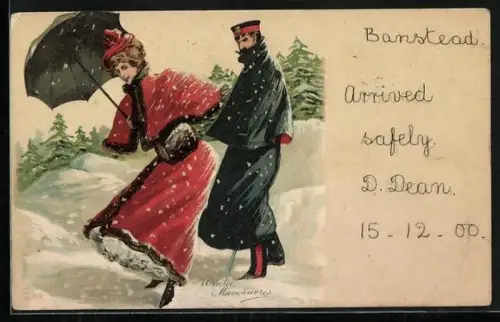 Banstead.
Arrived
safely.
D. Dean.
15-12-00.
Winter
Manoeuvres